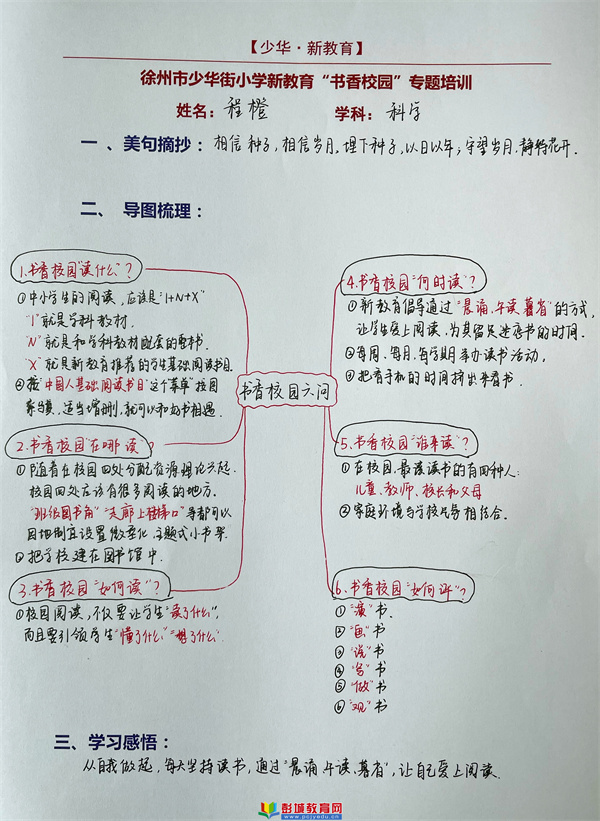 【少华·新教育】
徐州市少华街小学新教育“书香校园”专题培训
姓名：程橙 学科：科学
一、美句摘抄：相信种子，相信岁月，埋下种子，以日以年；守望岁月，静待花开．
二、导图梳理：
书香校园六问
1.书香校园“读什么”？
①中小学生的阅读，应该是“1+N+X”
“1”就是学科教材．
“N”就是和学科教材配套的图书．
“X”就是新教育推荐的学生基础阅读书目．
②按“中国人基础阅读书目”这个菜单“按图
索骥，适当增删，就可以和好书相遇．
2.书香校园“在哪读”？
①随着在校园四处分配资源理论兴起．
校园四处应该有很多阅读的地方．
“班级图书角”“走廊上楼梯口”等都可以
因地制宜设置微型化、主题式小书架．
②把学校建在图书馆中．
3.书香校园“如何读”？
①校园阅读，不仅要让学生“读了什么”，
而且要引领学生“懂了什么”“想了什么”．
4.书香校园“何时读”？
①新教育倡导通过“晨诵、午读、暮省”的方式，
让学生爱上阅读，为其留足进存书的时间．
②每周、每月、每学期举办读书活动，
③把看手机的时间挤出来看书．
5.书香校园“谁来读”？
①在校园，最该读书的有四种人：
儿童、教师、校长和父母
②家庭环境与学校氛围相结合．
6.书香校园“如何评”？
①“演”书．
②“画”书
③“说”书
④“写”书
⑤“做”书
⑥“观”书
三、学习感悟：
从自我做起，每天坚持读书，通过“晨诵、午读、暮省”，让自己爱上阅读．
彭城教育网
www.pcjyedu.cn